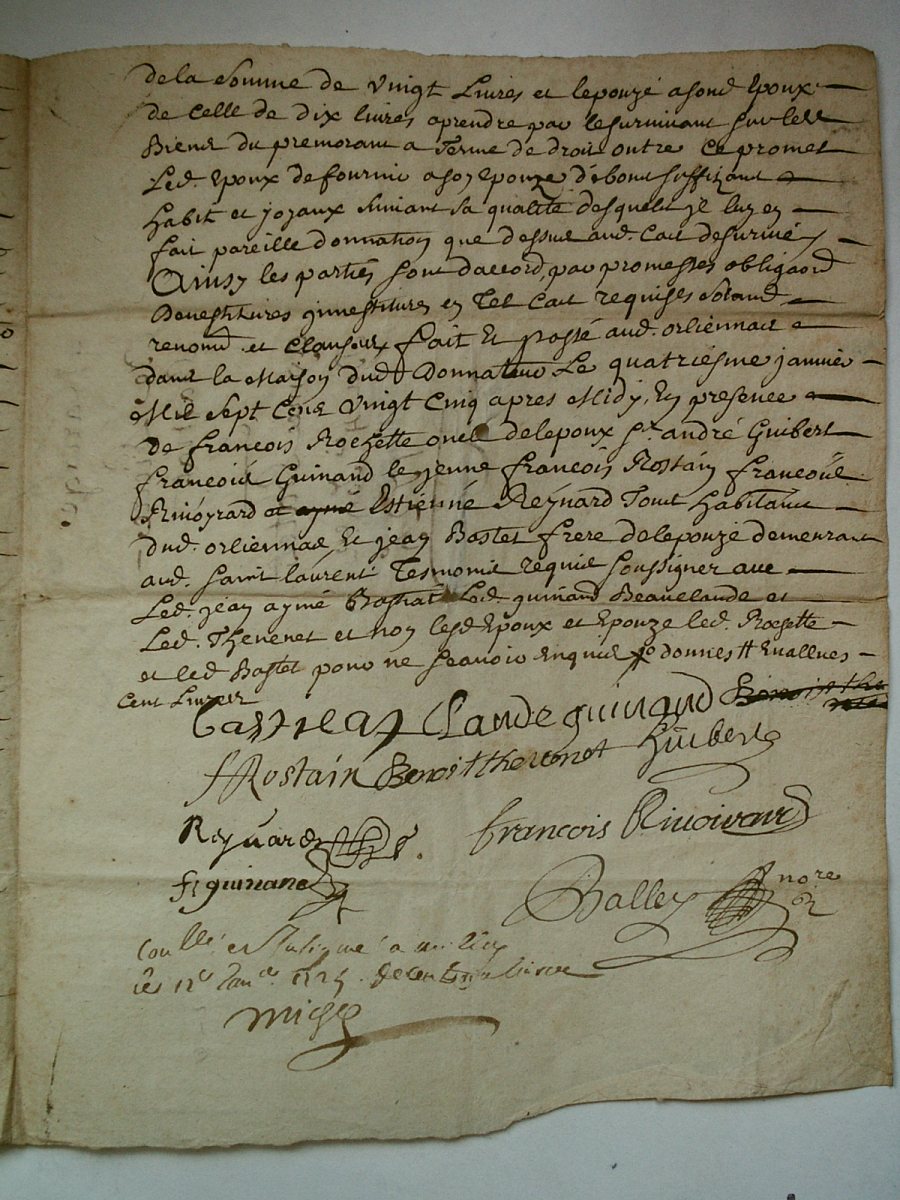 de la Somme de Vingt Livres et lepouze a sond. Epoux
de celle de dix livres aprendre par lesurvivant sur les
Biens du premorant a Terme de droit outre ce promet
Led. Epoux de fournir a son epouze d'ebons suffizant
habit et joyaux suivant sa qualité desquels jl luy en
fait pareille donnation que dessus aud. cas desurvie
Ainsy les parties sont daccord, par promesses obligaond
Devestitures jnvestitures en Tel cas requises
renond. et clauses fait Et passé aud. orliennas
dans la Maison dud. Donnateur Le quatriesme janvier
Mil Sept Cens Vingt Cinq apres Midy, En presence
de francois Rozette oncle delepoux Sr. andré Guibert
francois Guinand le jeune francois Rostain francois
Rivoyrard et aymé Estienne Reynard Tous habitans
dud. orliennas, Et jean Bastet frere delepouze demeurant
aud. Saint laurent Tesmoins requis soussignez avec
Led. jean aymé Led. guinand et
Led. Thevenet et non lesd Epoux et Epouze led. Rozette
et led Bastet pour ne scavoir enquis donnes # Evallues
cent Livres
Claude guinand Benoist the
f Rostain Benoist thevenot Guibert
Reynard francois Rivoirard
fs guinand Balley nore
Conllé et
le 12e Janer 1725.